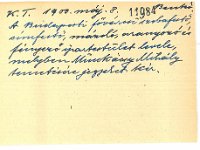 K. T. 1900. máj. 8. 11984
A Budapesti fővárosi szobafestő
címfestő, mázoló, aranyozó és
fényező ipartestület levele,
melyben Munkácsy Mihály
temetésére jegyet kér.